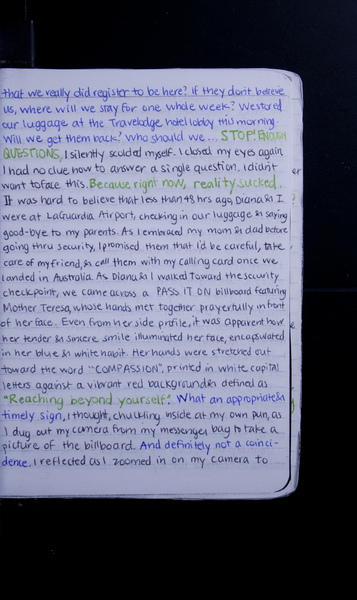 that we really did register to be here? If they don't believe
us, where will we stay for one whole week? We stored
our luggage at the Travelodge hotel lobby this morning.
Will we get them back? Who should we... STOP! ENOUGH
QUESTIONS, I silently scolded myself. I closed my eyes again.
I had no clue how to answer a single question. I didn't
want to face this. Because right now, reality sucked.
It was hard to believe that less than 48 hrs ago, Diana & I
were at LaGuardia Airport, checking in our luggage & saying
good-bye to my parents. As I embraced my mom & dad before
going thru security, I promised them that I'd be careful, take
care of my friend, & call them with my calling card once we
landed in Australia. As Diana & I walked toward the security
checkpoint, we came across a PASS IT ON billboard featuring
Mother Teresa, whose hands met together prayerfully in front
of her face. Even from her side profile, it was apparent how
her tender & sincere smile illuminated her face, encapsulated
in her blue & white habit. Her hands were stretched out
toward the word "COMPASSION", printed in white capital
letters against a vibrant red background & defined as
"Reaching beyond yourself." What an appropriate &
timely sign, I thought, chuckling inside at my own pun, as
I dug out my camera from my messenger bag to take a
picture of the billboard. And definitely not a coinci-
dence, I reflected as I zoomed in on my camera to